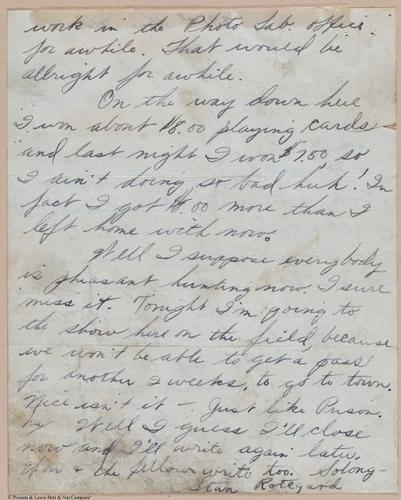 work in the Photo Lab. office
for awhile. That would be
allright for awhile.
On the way down here
I won about $8.00 playing cards
and last night I won $7.50, so
I ain't doing so bad huh! In
fact I got $8.00 more than I
left home with now.
Well I suppose everybody
is pheasant hunting now. I sure
miss it. Tonight I'm going to
the show here on the field because
we won't be able to get a pass
for another 2 weeks, to go to town.
Nice isn't it - Just like Prison.
Well I guess I'll close
now and I'll write again later.
& the fellows write too. So long-
Stan Rotegard